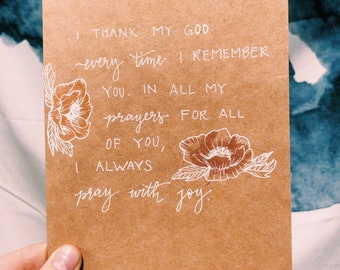 I THANK MY GOD
every time I REMEMBER
YOU. IN ALL MY
prayers FOR ALL
OF YOU,
I ALWAYS
pray with joy.